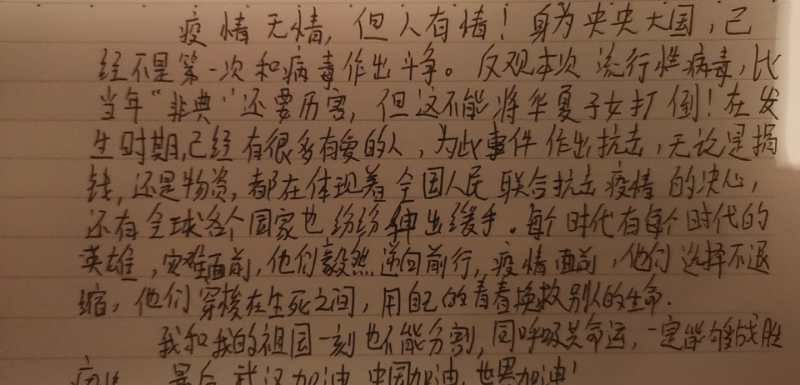 疫情无情，但人有情！身为央央大国，已
经不是第一次和病毒作出斗争。反观本次流行性病毒，比
当年“非典”还要厉害，但这不能将华夏子女打倒！在发
生时期，已经有很多有爱的人，为此事件作出抗击，无论是捐
钱，还是物资，都在体现着全国人民联合抗击疫情的决心，
还有全球各个国家也纷纷伸出缓手。每个时代有每个时代的
英雄，灾难面前，他们毅然逆向前行，疫情面前，他们选择不退
缩，他们穿梭在生死之间，用自己的青春换救别人的生命.
我和我的祖国一刻也不能分割，同呼吸共命运，一定能够战胜
最后 武汉加油 中国加油，世界加油！